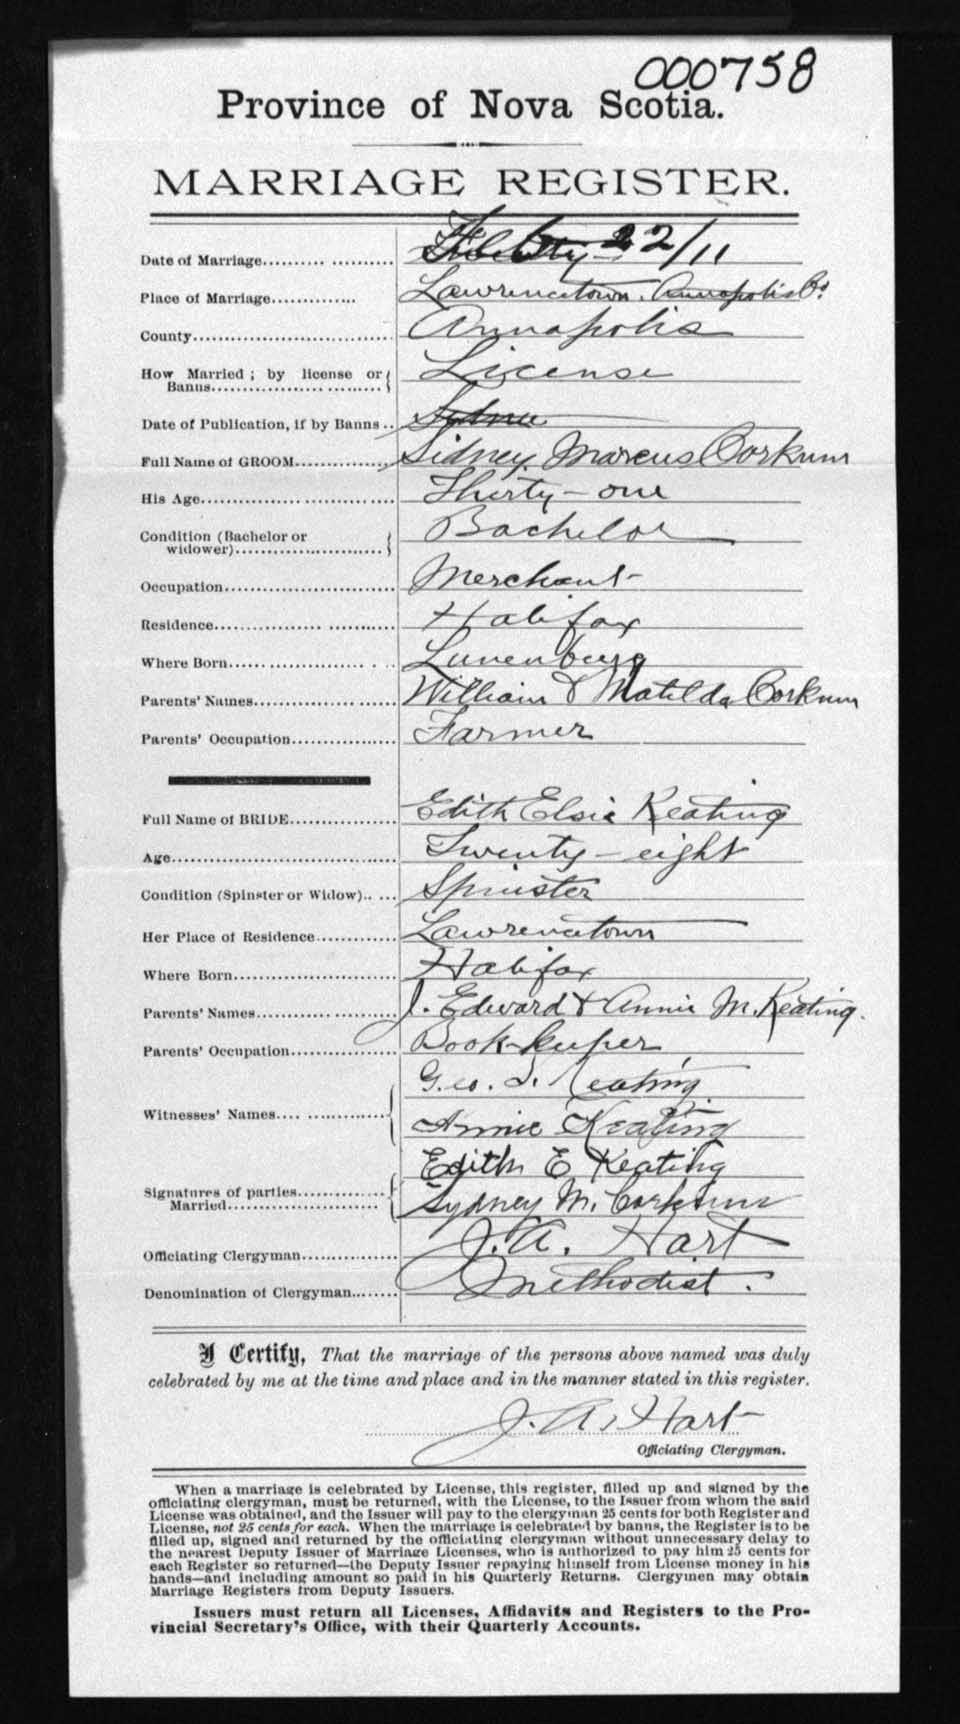 000758
Province of Nova Scotia.
MARRIAGE REGISTER.
Date of Marriage.......... .......... Feb 22/11
Place of Marriage............. Lawrencetown. Annapolis Co.
County................................ Annapolis
How Married ; by license or Banns.................. ......... License
Date of Publication, if by Banns .. Sydne
Full Name of GROOM............... Sidney Marcus Corkum
His Age............................... Thirty-one
Condition (Bachelor or widower)......................... Bachelor
Occupation........................... Merchant
Residence.................. .......... Halifax
Where Born..................... . .. Lunenburg
Parents' Names................. ....... William & Matilda Corkum
Parents' Occupation.................. Farmer
Full Name of BRIDE.................. Edith Elsie Keating
Age..................................... Twenty-eight
Condition (Spinster or Widow).. ... Spinster
Her Place of Residence.............. Lawrencetown
Where Born............................ Halifax
Parents' Names......................... J. Edward & Annie M. Keating.
Parents' Occupation.................. Book-keeper
Witnesses' Names.... ............. Geo. Keating
Annie Keating
Edith E Keating
Signatures of parties Married......................... Sydney M. Corkum
Officiating Clergyman................ J. A. Hart
Denomination of Clergyman........ Methodist.
I Certify, That the marriage of the persons above named was duly
celebrated by me at the time and place and in the manner stated in this register.
J. A. Hart
Officiating Clergyman.
When a marriage is celebrated by License, this register, filled up and signed by the
officiating clergyman, must be returned, with the License, to the Issuer from whom the said
License was obtained, and the Issuer will pay to the clergyman 25 cents for both Register and
License, not 25 cents for each. When the marriage is celebrated by banns, the Register is to be
filled up, signed and returned by the officiating clergyman without unnecessary delay to
the nearest Deputy Issuer of Marriage Licenses, who is authorized to pay him 25 cents for
each Register so returned—the Deputy Issuer repaying himself from License money in his
hands—and including amount so paid in his Quarterly Returns. Clergymen may obtain
Marriage Registers from Deputy Issuers.
Issuers must return all Licenses, Affidavits and Registers to the Pro-
vincial Secretary's Office, with their Quarterly Accounts.